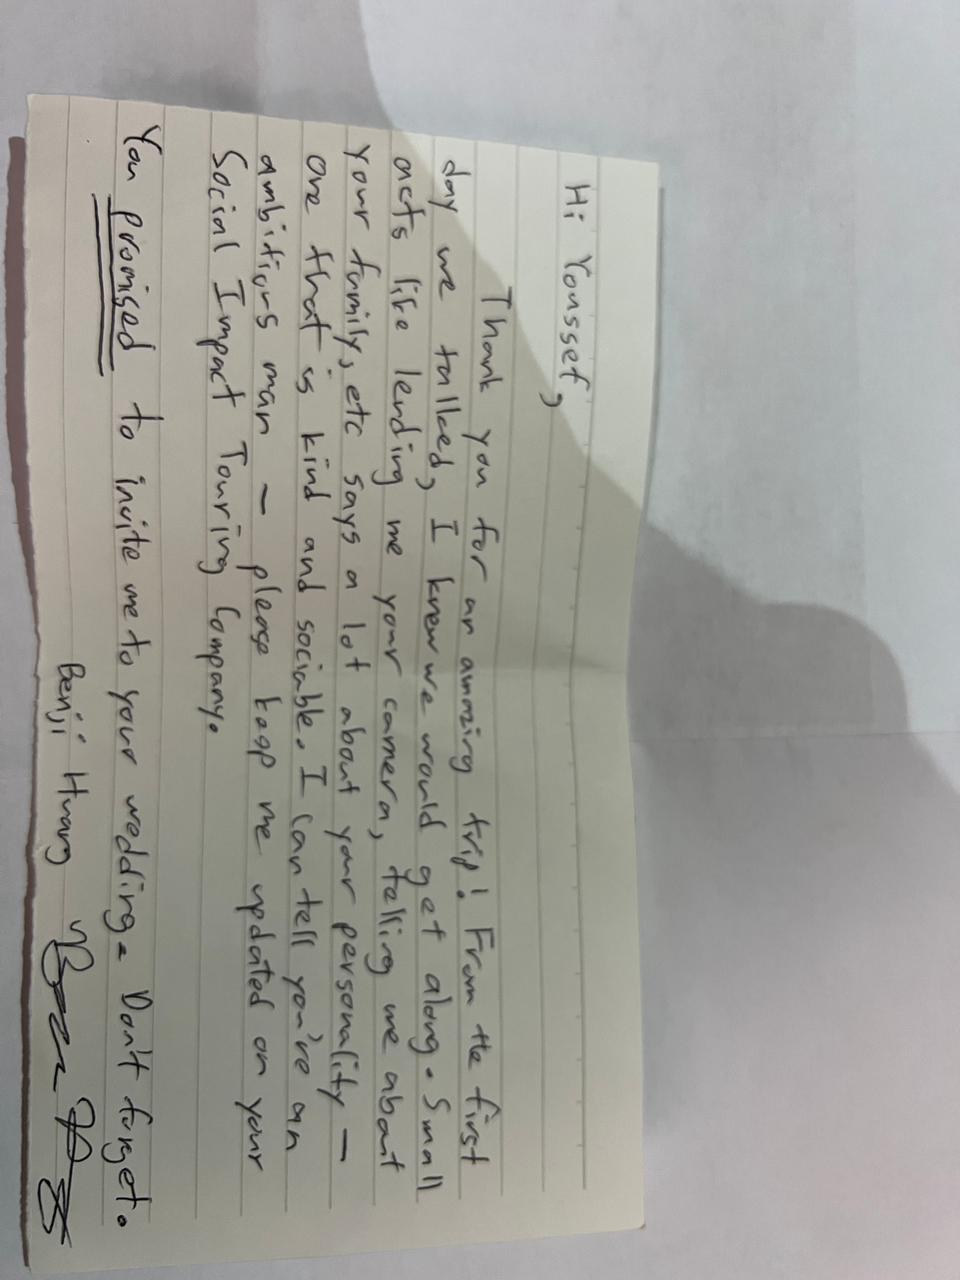 Hi Youssef,
Thank you for an amazing trip! From the first
day we talked, I knew we would get along. Small
acts like lending me your camera, telling me about
your family, etc says a lot about your personality –
one that is kind and sociable. I can tell you're an
ambitious man – please keep me updated on your
Social Impact Touring Company.
You promised to invite me to your wedding. Don't forget.
Benji Huang